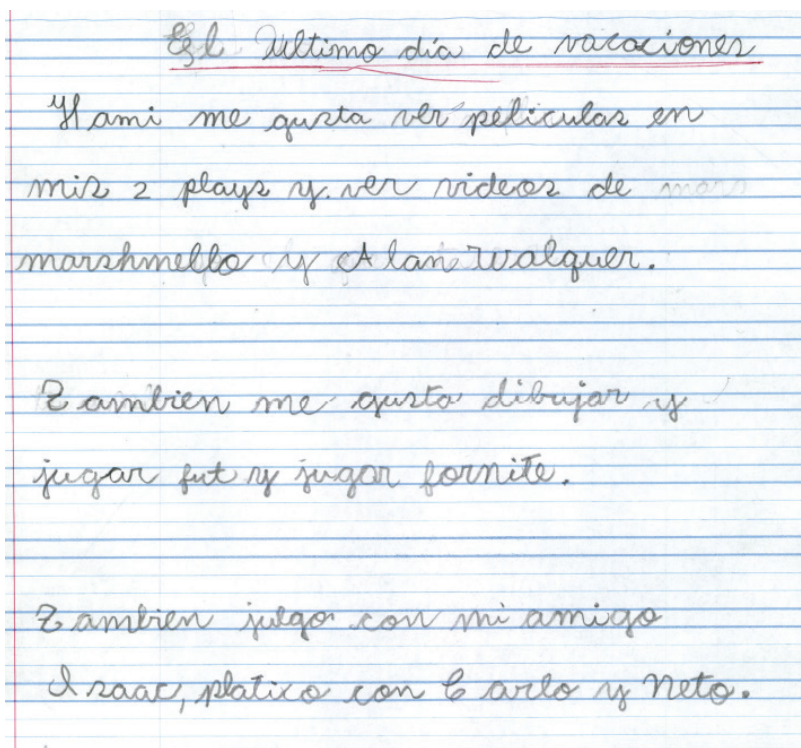 El Ultimo día de vacaciones
Hami me gusta ver peliculas en
mis 2 plays y ver videos de
marshmello y Alan Walquer.
Tambien me gusta dibujar y
jugar fut y jugar fornite.
Tambien julgo con mi amigo
Isaac, platico con Carlo y Neto.